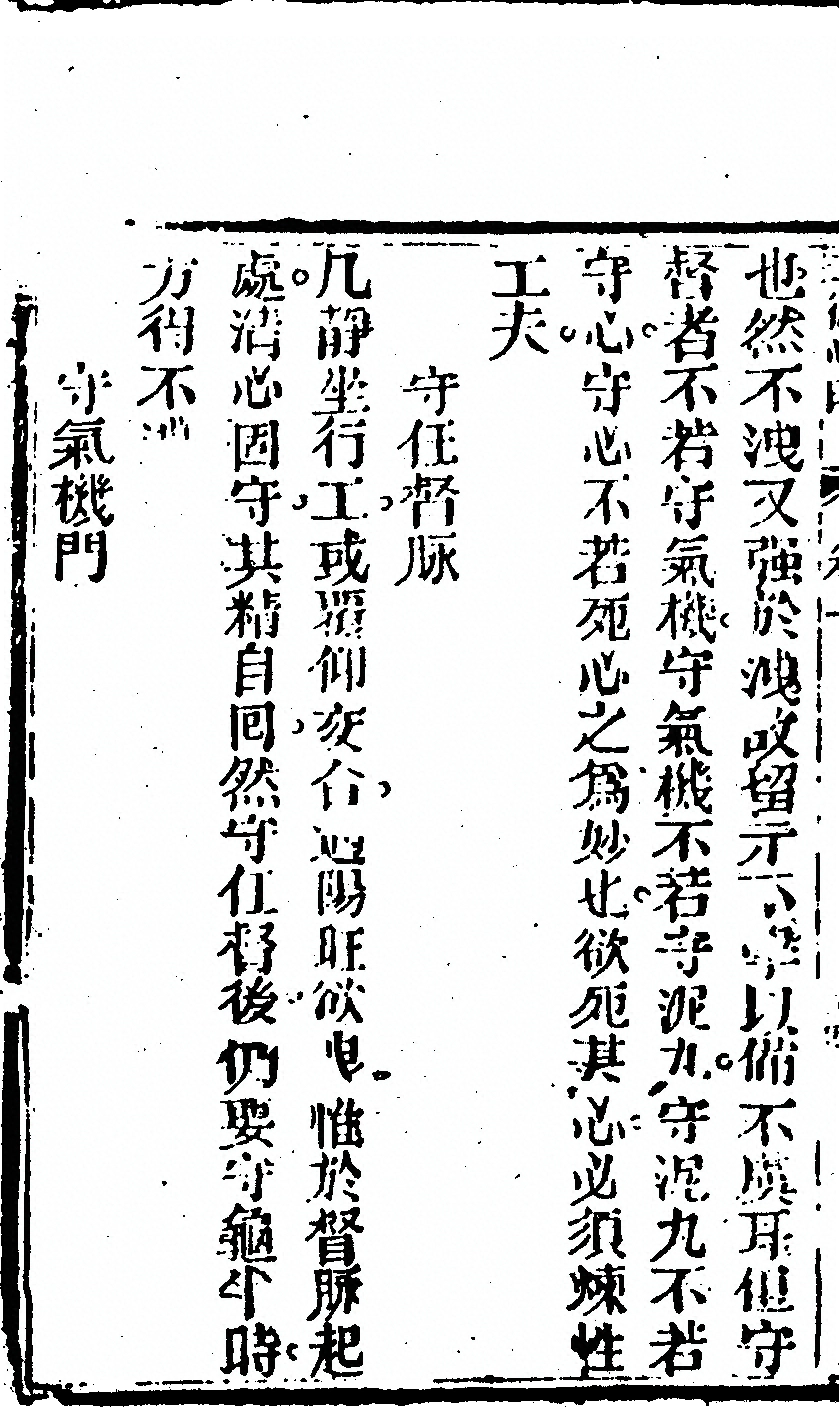 也然不洩又强於洩故留示下學以備不虞耳但守
督者不若守氣機守氣機不若守泥丸守泥九不若
守心守心不若死心之爲妙也欲死其心必須煉性
工夫
守任督脈
凡静坐行工或覆仰交合過陽旺欲洩惟於督脈起
處清心固守其精自回然守任督後仍要守龜半時
方得不洩
守氣機門